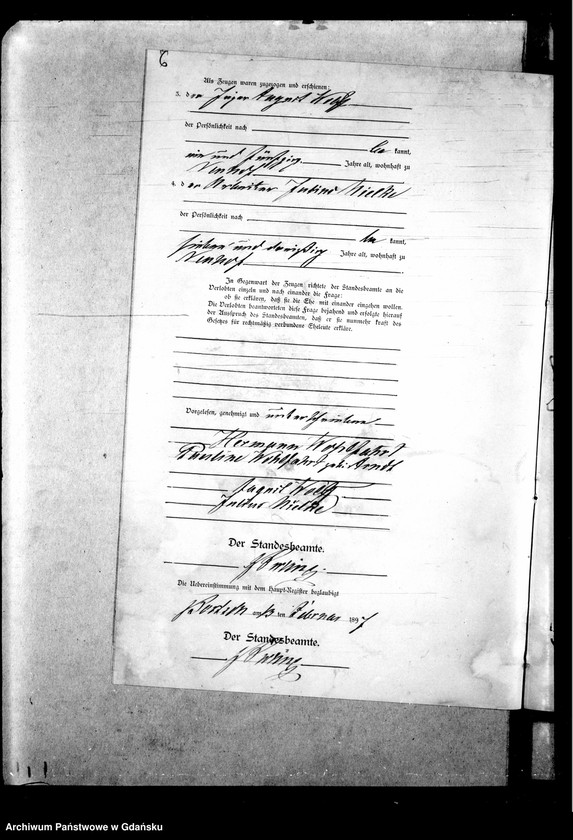 Als Zeugen waren zugezogen und erschienen:
3. der August Wolff
der Persönlichkeit nach
bekannt,
ein und fünfzig Jahre alt, wohnhaft zu
Neuhof
4. der Arbeiter Julius Mielke
der Persönlichkeit nach
bekannt,
sieben und dreißig Jahre alt, wohnhaft zu
Neuhof
In Gegenwart der Zeugen richtete der Standesbeamte an die
Verlobten einzeln und nach einander die Frage:
ob sie erklären, daß sie die Ehe mit einander eingehen wollen.
Die Verlobten beantworteten diese Frage bejahend und erfolgte hierauf
der Ausspruch des Standesbeamten, daß er sie nunmehr kraft des
Gesetzes für rechtmäßig verbundene Eheleute erkläre.
Vorgelesen, genehmigt und unterschrieben
Hermann Wohlfahrt
Pauline Wohlfahrt geb. Arndt
August Wolff
Julius Mielke
Der Standesbeamte.
Die Uebereinstimmung mit dem Haupt-Register beglaubigt
am 13 ten Februar 1897
Der Standesbeamte.
Archiwum Państwowe w Gdańsku